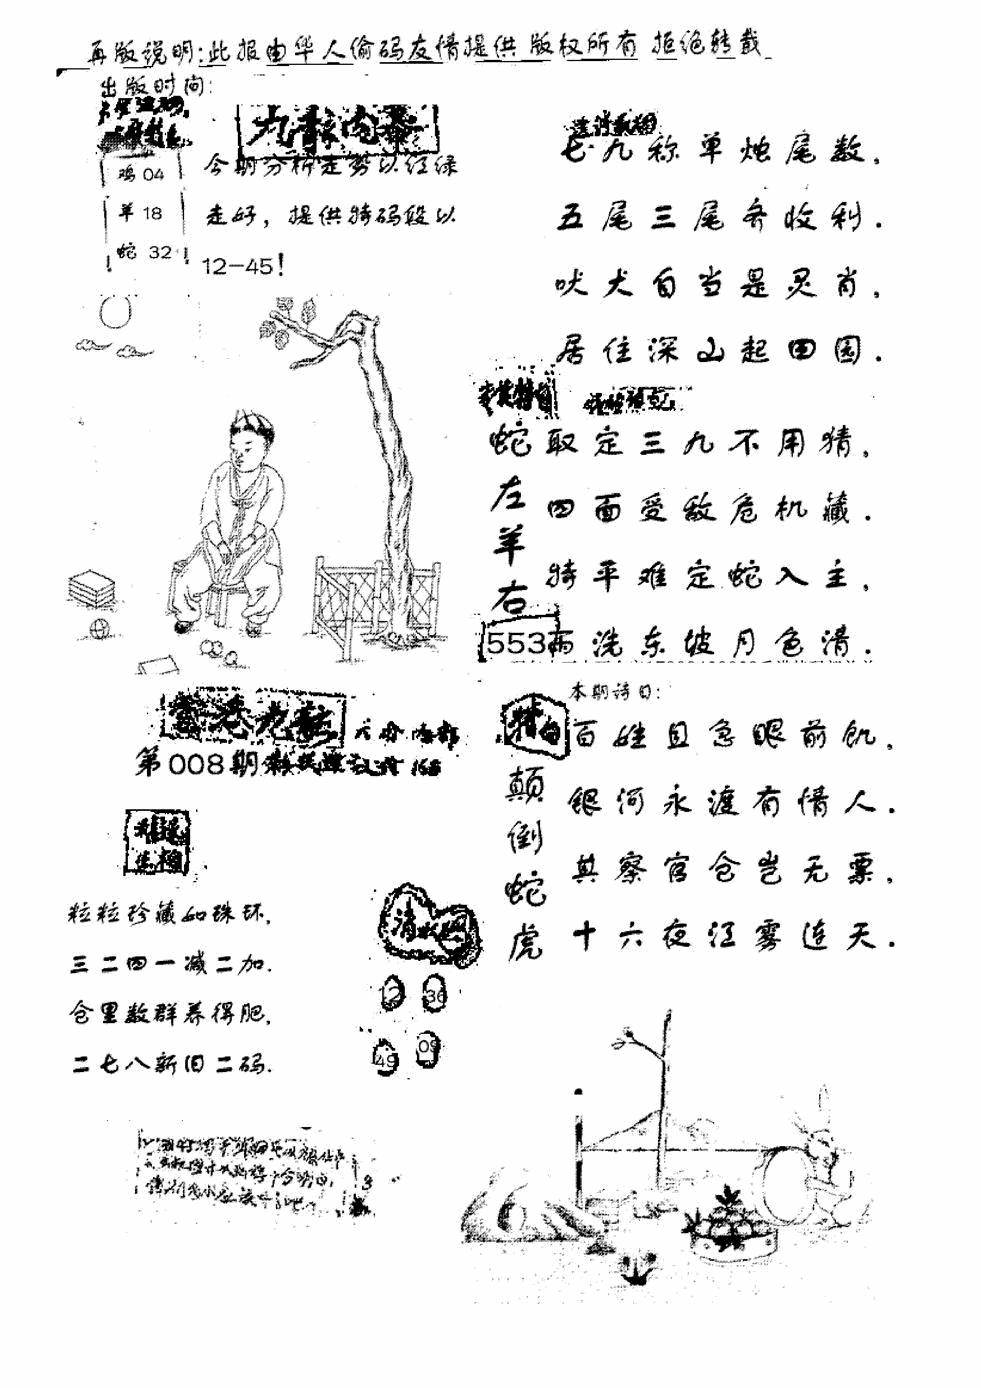 再版说明:此报由华人偷码友情提供 版权所有 拒绝转载
出版时间:
鸡 04
羊 18
蛇 32
今期分析走势以红绿
走好，提供特码段以
12—45!
七九称单烛尾数.
五尾三尾齐收利.
吠犬自当是灵肖.
居住深山起田园.
取定三九不用猜.
四面受敌危机藏.
特平难定蛇入主.
553
雨洗东坡月色清.
蛇左羊右
第008期
粒粒珍藏如珠环.
三二四一减二加.
仓里数群养得肥.
二七八新旧二码.
12 36
49 09
本期诗曰:
百姓且急眼前饥.
银河永渡有情人.
其察官仓岂无票.
十六夜江雾连天.
特肖
颠倒蛇虎